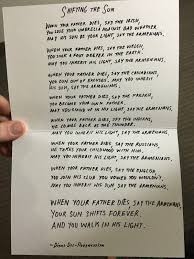 SHIFTING THE SUN
WHEN YOUR FATHER DIES, SAY THE IRISH,
YOU LOSE YOUR UMBRELLA AGAINST BAD WEATHER.
MAY HIS SUN BE YOUR LIGHT, SAY THE ARMENIANS.
WHEN YOUR FATHER DIES, SAY THE WELSH,
YOU SINK A FOOT DEEPER IN THE EARTH.
MAY YOU INHERIT HIS LIGHT, SAY THE ARMENIANS.
WHEN YOUR FATHER DIES, SAY THE CANADIANS,
YOU RUN OUT OF EXCUSES.
MAY HIS SUN BE YOUR LIGHT, SAY THE ARMENIANS.
WHEN YOUR FATHER DIES, SAY THE
YOU BECOME YOUR OWN FATHER.
MAY YOU STAND UP IN HIS LIGHT, SAY THE ARMENIANS.
WHEN YOUR FATHER DIES, SAY THE INDIANS,
HE COMES BACK AS THE THUNDER.
MAY YOU INHERIT HIS LIGHT, SAY THE ARMENIANS.
WHEN YOUR FATHER DIES, SAY THE RUSSIANS,
HE TAKES YOUR CHILDHOOD WITH HIM.
MAY YOU INHERIT HIS LIGHT, SAY THE ARMENIANS.
WHEN YOUR FATHER DIES, SAY THE ENGLISH,
YOU JOIN HIS CLUB YOU VOWED YOU WOULDN'T.
MAY YOU INHERIT HIS LIGHT, SAY THE ARMENIANS.
WHEN YOUR FATHER DIES, SAY THE ARMENIANS,
YOUR SUN SHIFTS FOREVER.
AND YOU WALK IN HIS LIGHT.
~DIANA DER-HOVANESSIAN